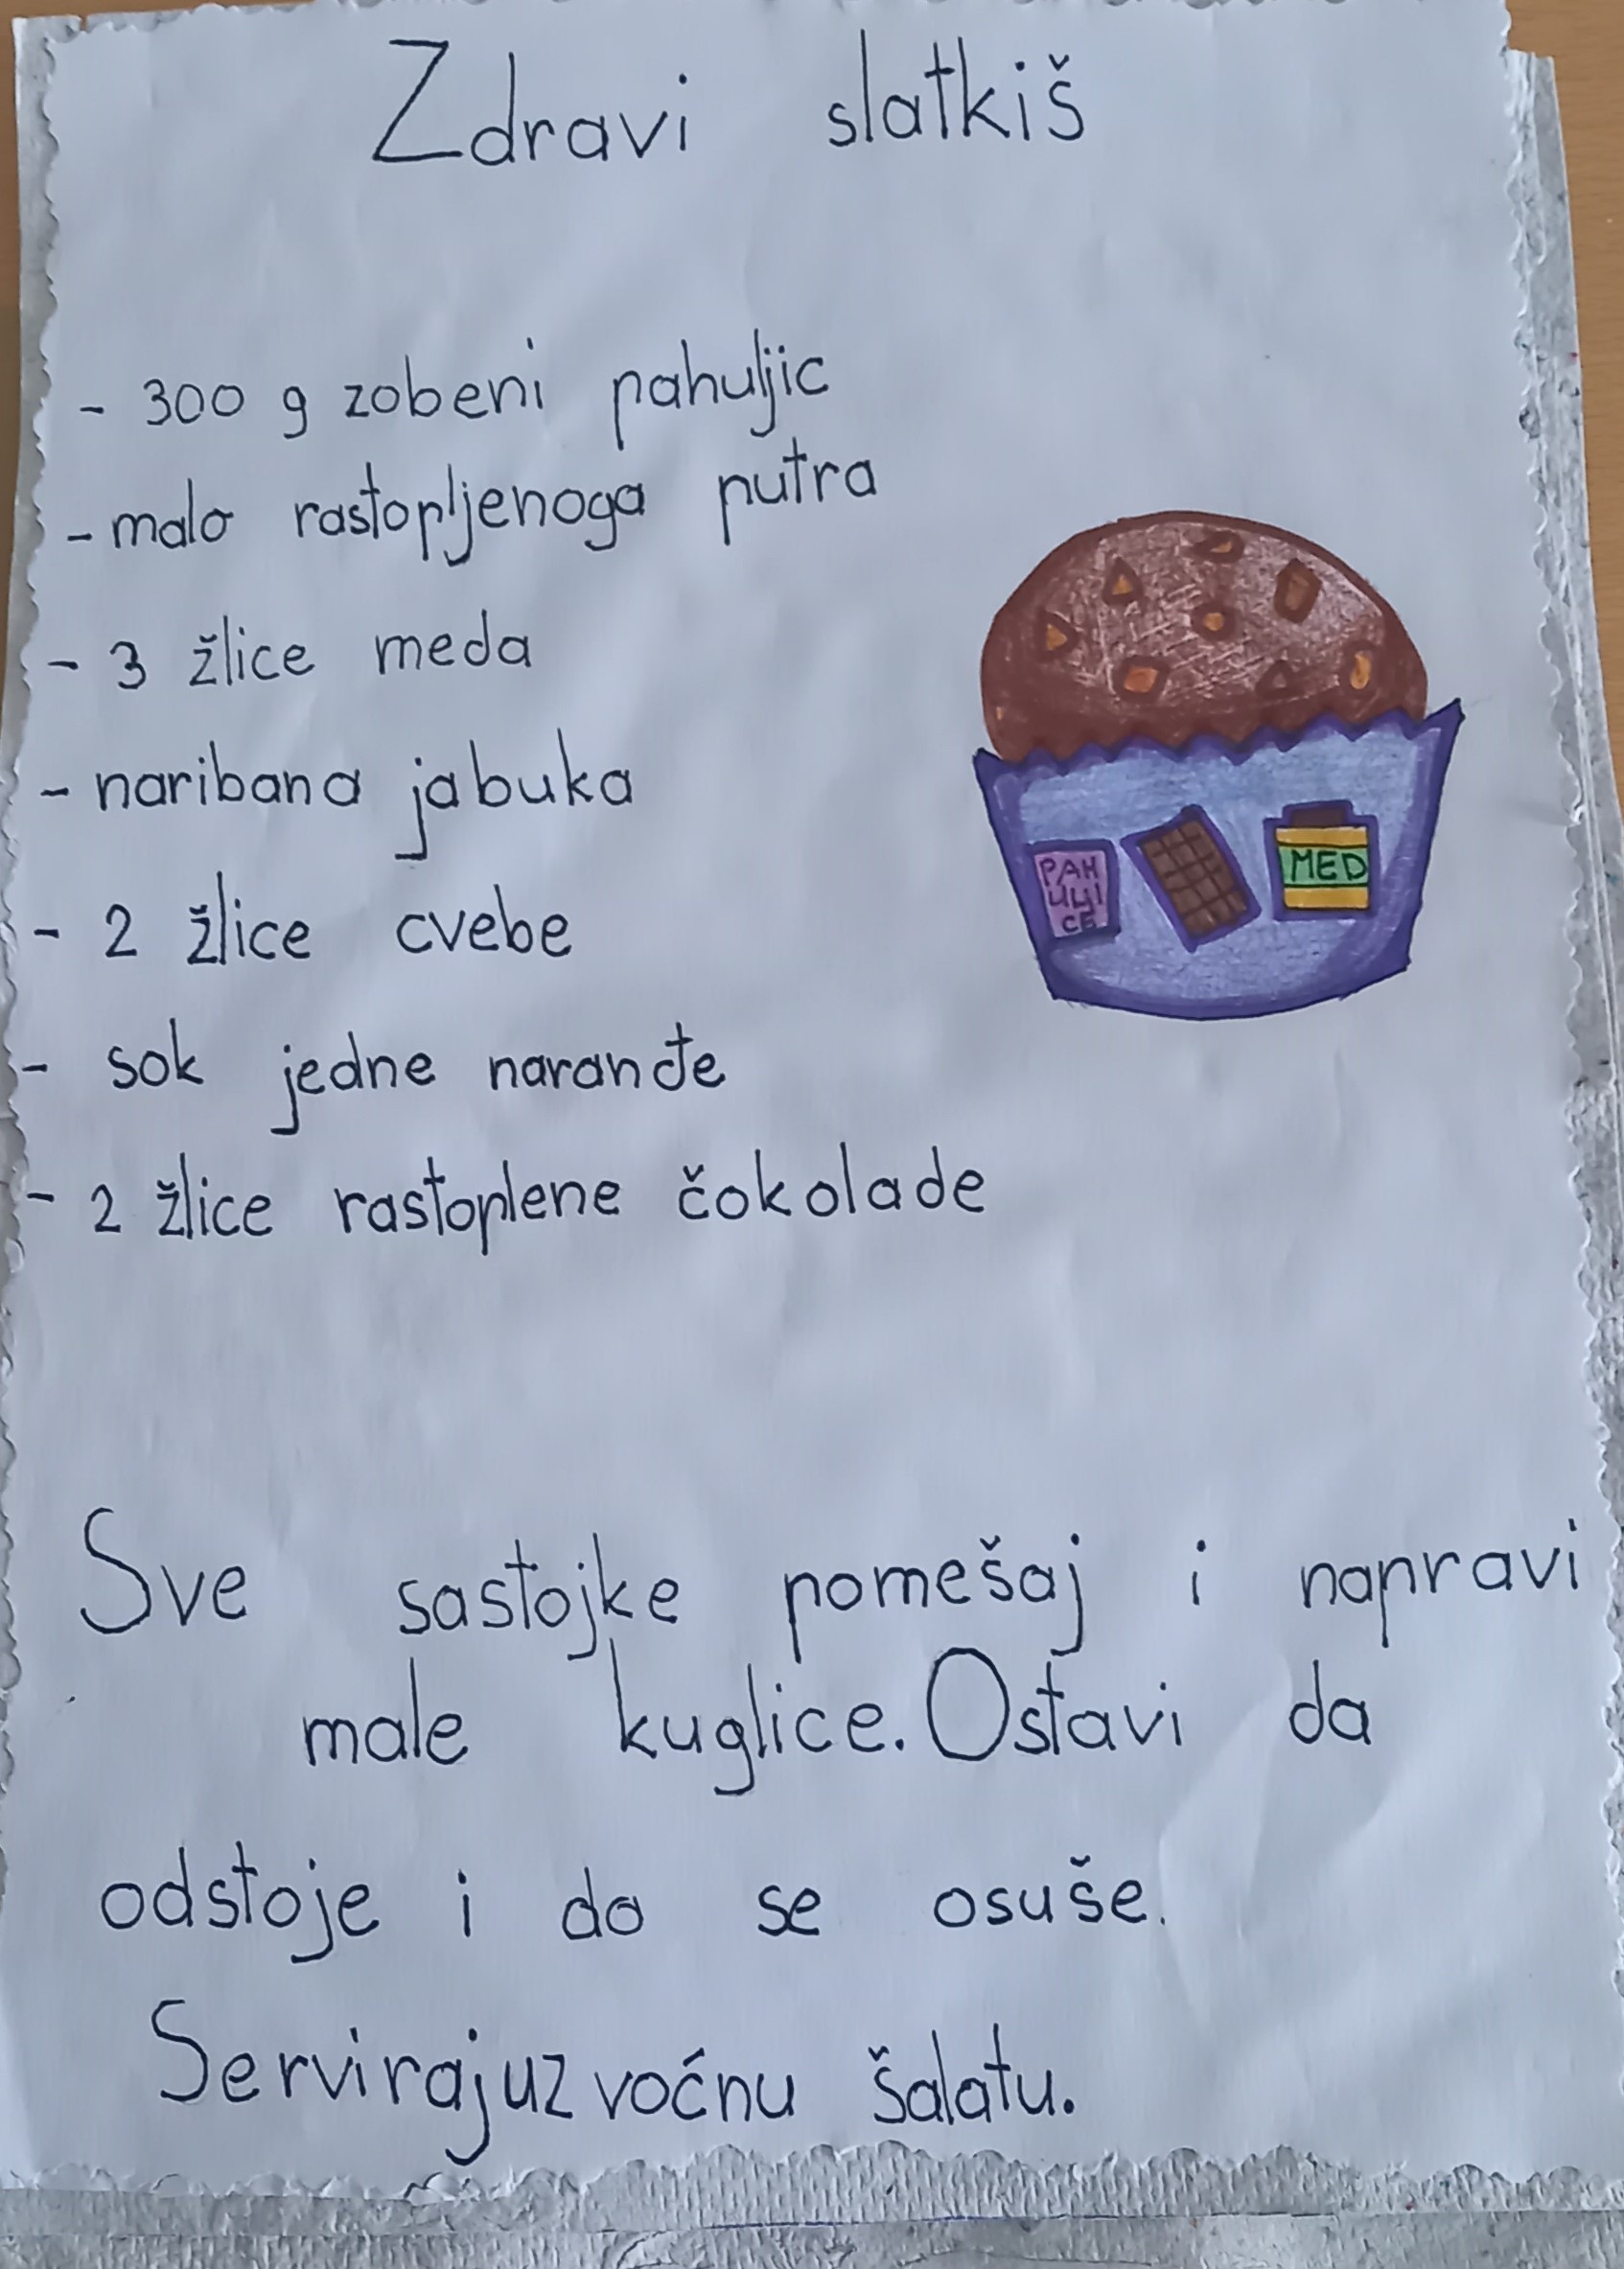 Zdravi slatkiš
- 300 g zobeni pahuljic
- malo rastopljenoga putra
- 3 žlice meda
- naribana jabuka
- 2 žlice cvebe
PAH
ULJI
CE
MED
- sok jedne naranđe
- 2 žlice rastoplene čokolade
Sve sastojke pomešaj i napravi
male kuglice. Ostavi da
odstoje i da se osuše.
Serviraj uz voćnu šalatu.